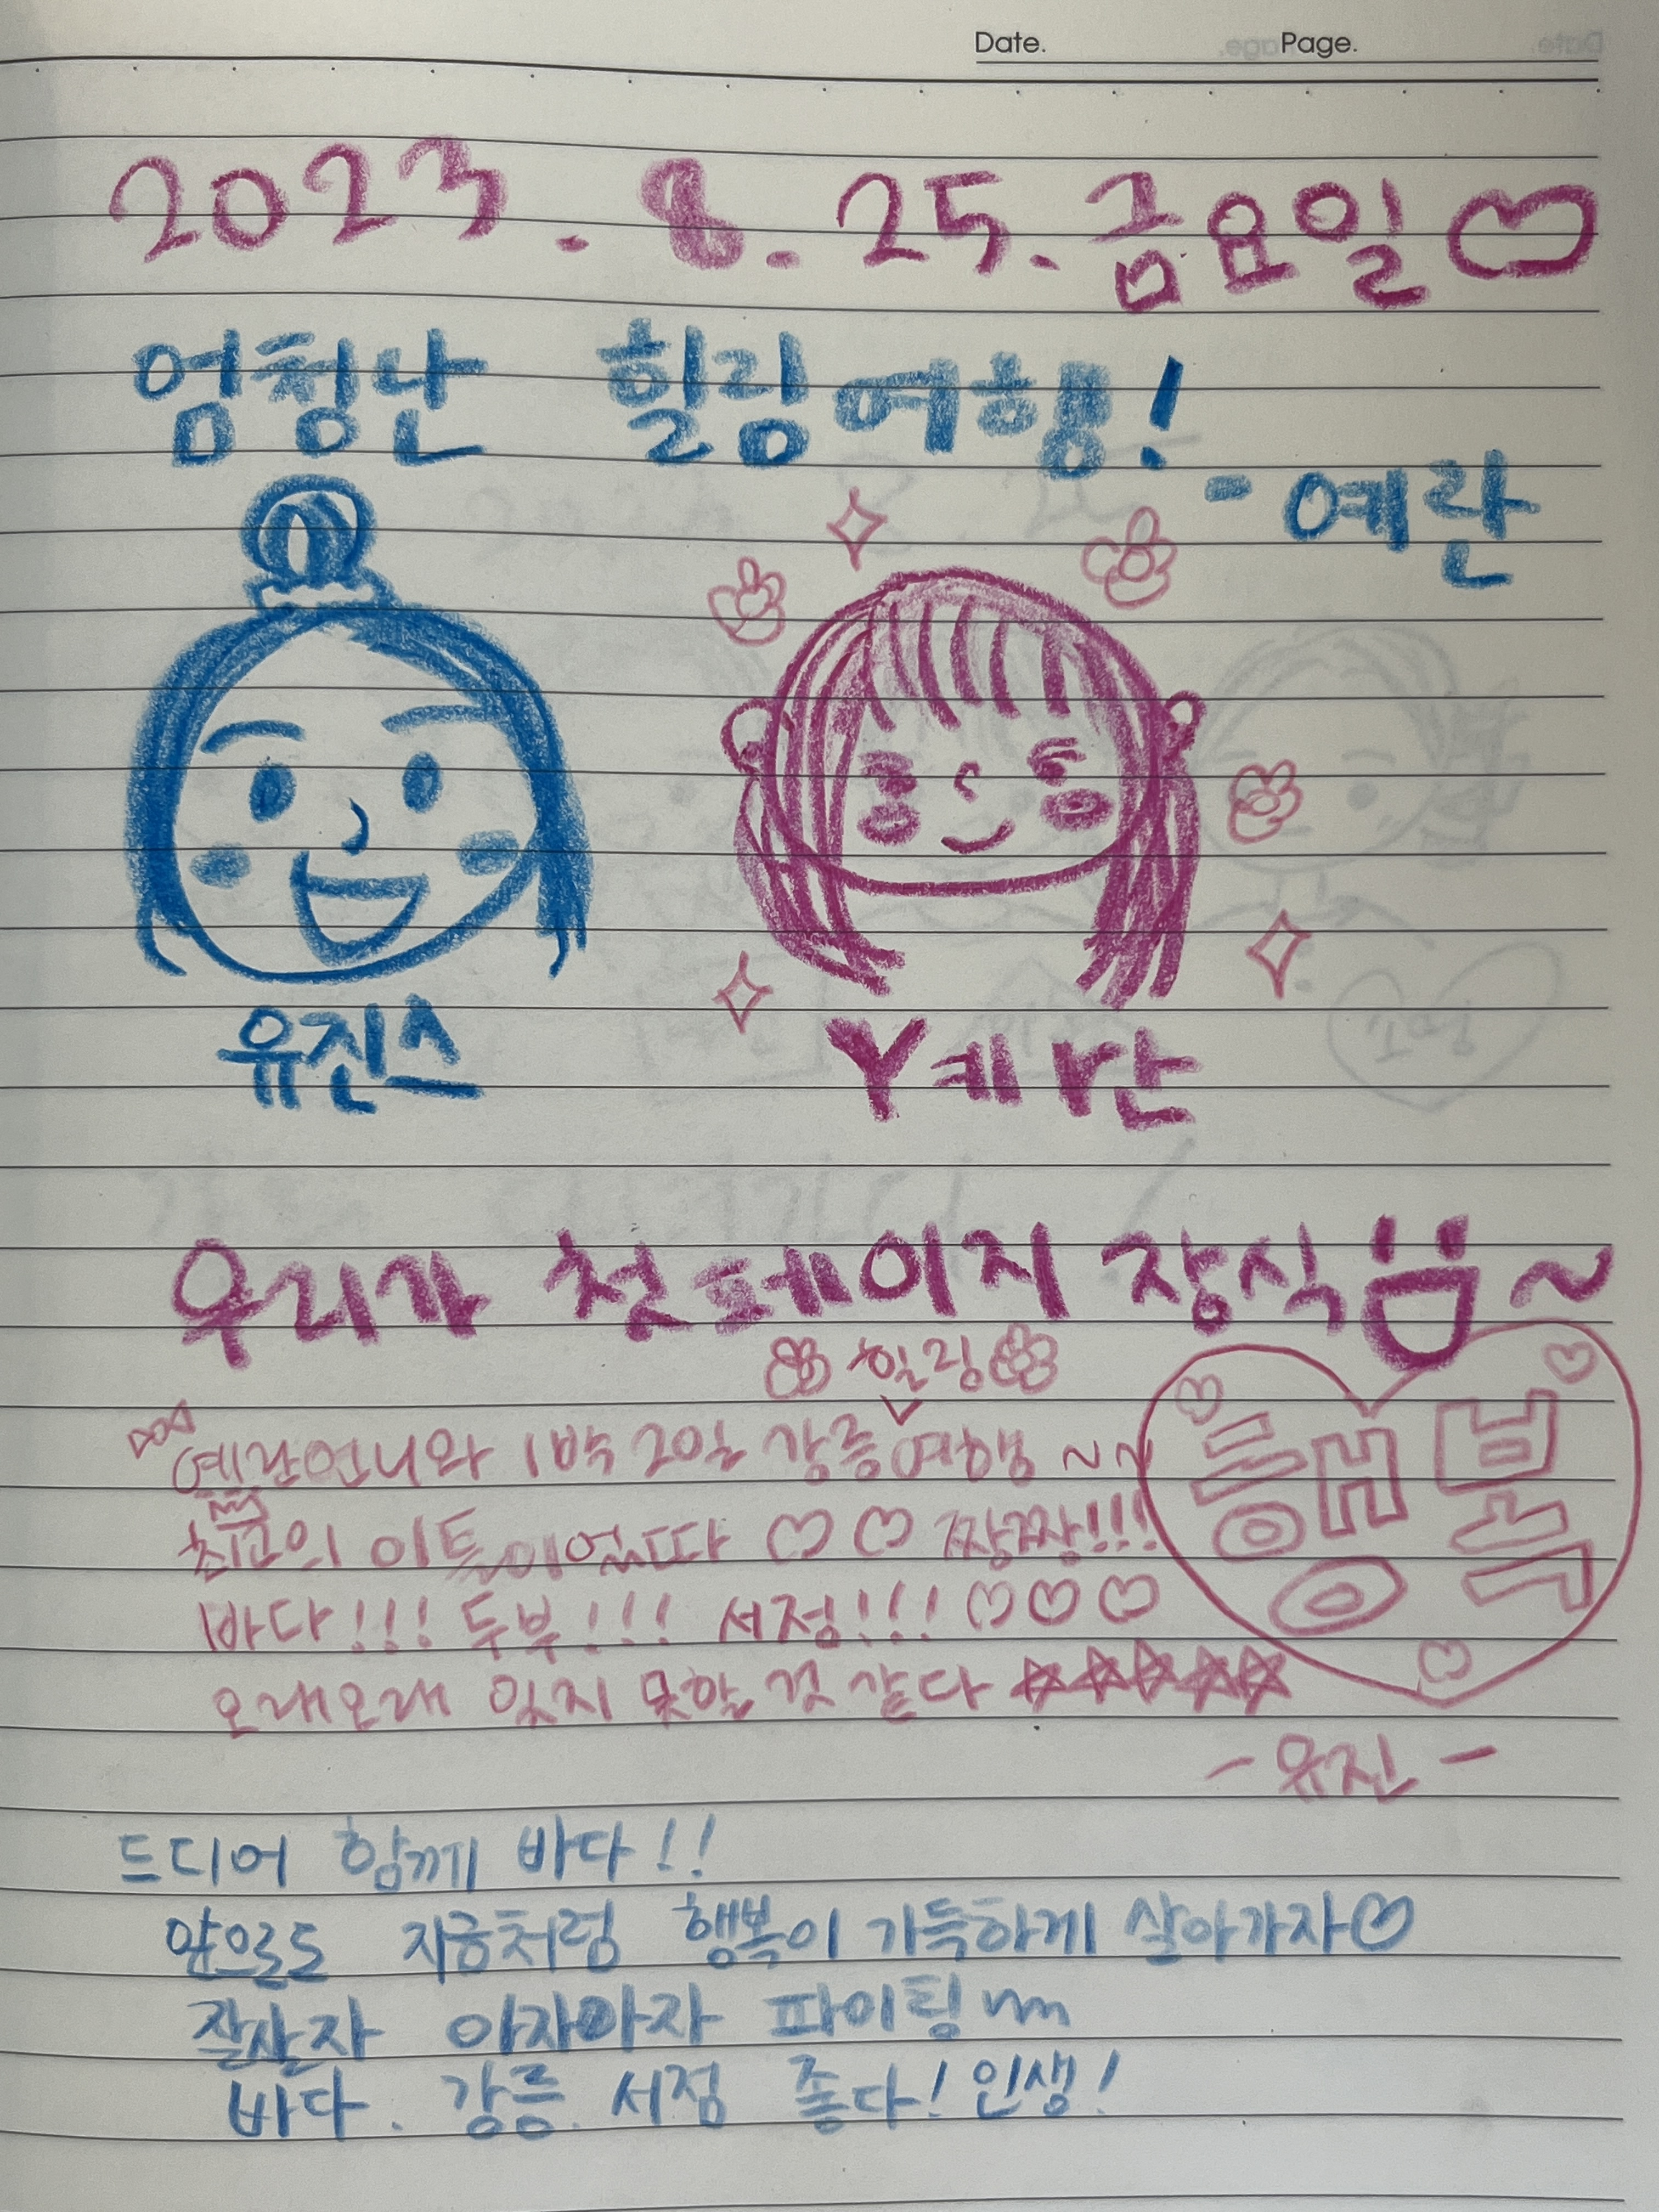 Date. Page.
2023. 8. 25. 금요일♡
엄청난 힐링여행!
- 예란
유진스
Y예 라란
우리가 첫페이지 장식~
힐링
예란언니와 1박 2일 강릉여행 ~~
최고의 이틀이었따 ♡ ♡ 짱짱!!!
바다!!! 두부!!! 서점!!! ♡♡♡
오래오래 잊지 못할 것 같다 ☆☆☆☆☆
행복
- 유진 -
드디어 함께 바다!!
앞으로도 지금처럼 행복이 가득하게 살아가자♡
잘살자 아자아자 파이팅
바다. 강릉. 서점 좋다! 인생!